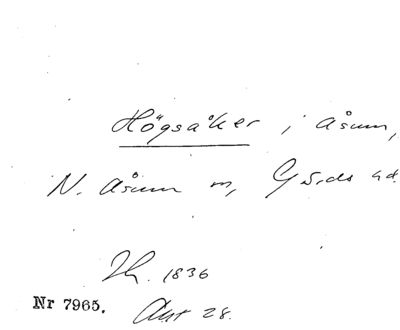 Högsåker i Åsum,
N. Åsum sn, Gärds hd.
Lk. 1836
Nr 7965. Akt 28.